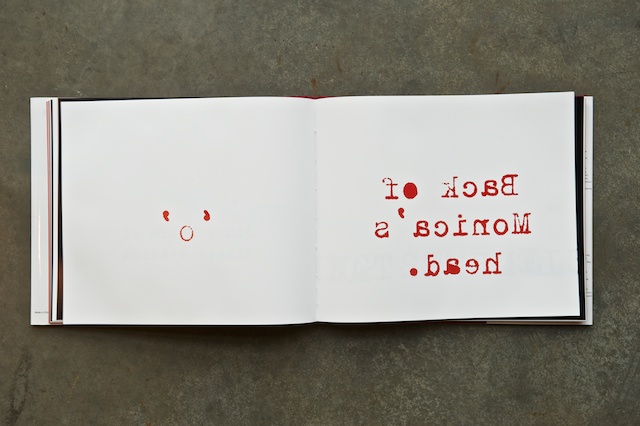 ' '
O
Back of
Monica's
head.